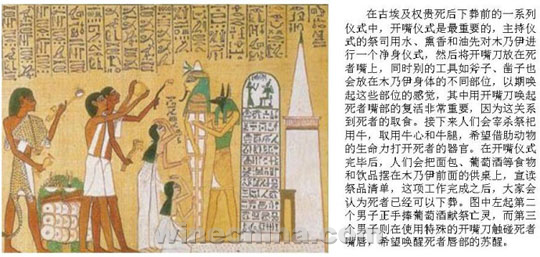 在古埃及权贵死后下葬前的一系列
仪式中，开嘴仪式是最重要的，主持仪
式的祭司用水、熏香和油先对木乃伊进
行一个净身仪式，然后将开嘴刀放在死
者嘴上，同时别的工具如斧子、凿子也
会放在木乃伊身体的不同部位，以期唤
起这些部位的感觉，其中用开嘴刀唤起
死者嘴部的复活非常重要，因为这关系
到死者的取食。接下来人们会宰杀祭祀
用牛，取用牛心和牛腿，希望借助动物
的生命力打开死者的器官。在开嘴仪式
完毕后，人们会把面包、葡萄酒等食物
和饮品摆在木乃伊前面的供桌上，宣读
祭品清单，这项工作完成之后，大家会
认为死者已经可以下葬。图中左起第二
个男子正手捧葡萄酒献祭亡灵，而第三
个男子则在使用特殊的开嘴刀触碰死者
嘴唇，希望唤醒死者唇部的苏醒。